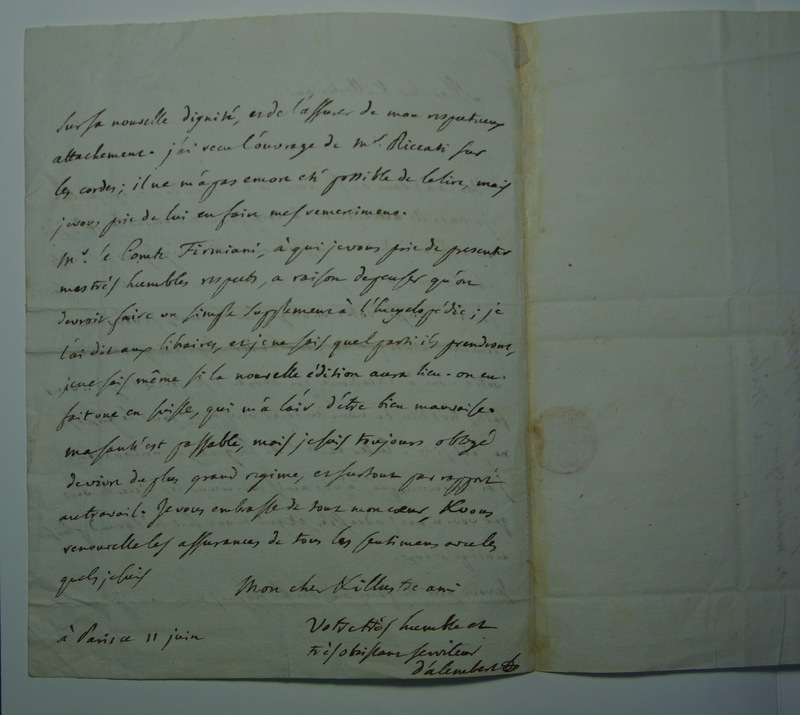 sur sa nouvelle dignité, et de l'assurer de mon respectueux
attachement. j'ai recu l'ouvrage de mr. Riccati sur
les cordes; il ne m'a pas encore eté possible de le lire, mais
je vous prie de lui en faire mes remercimens.
Mr. le Comte Firmiani, à qui je vous prie de presenter
mes très humbles respects, a raison de penser qu'on
devroit faire un simple supplement à l'Encyclopédie; je
l'ai dit aux libraires, et je ne sais quel parti ils prendront,
je ne sais même si la nouvelle édition aura lieu. on en
fait une en suisse, qui m'a l'air d'être bien mauvaise.
ma santé est passable, mais je suis toujours obligé
de vivre du plus grand regime, et surtout par rapport
au travail. Je vous embrasse de tout mon cœur, & vous
renouvelle les assurances de tous les sentimens avec les
quels je suis
Mon cher & illustre ami
Votre très humble et
très obéissant serviteur
d'alembert
à Paris ce 11 juin